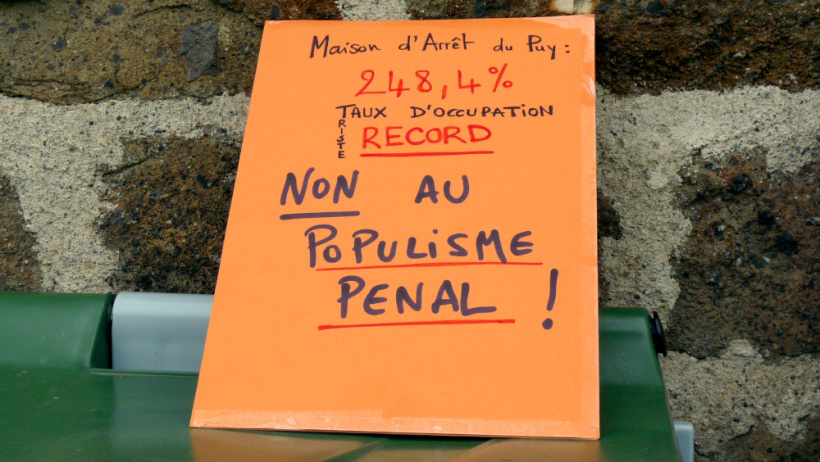 Maison d'Arrêt du Puy :
248,4%
TAUX D'OCCUPATION
TRISTE RECORD
NON AU
POPULISME
PENAL !